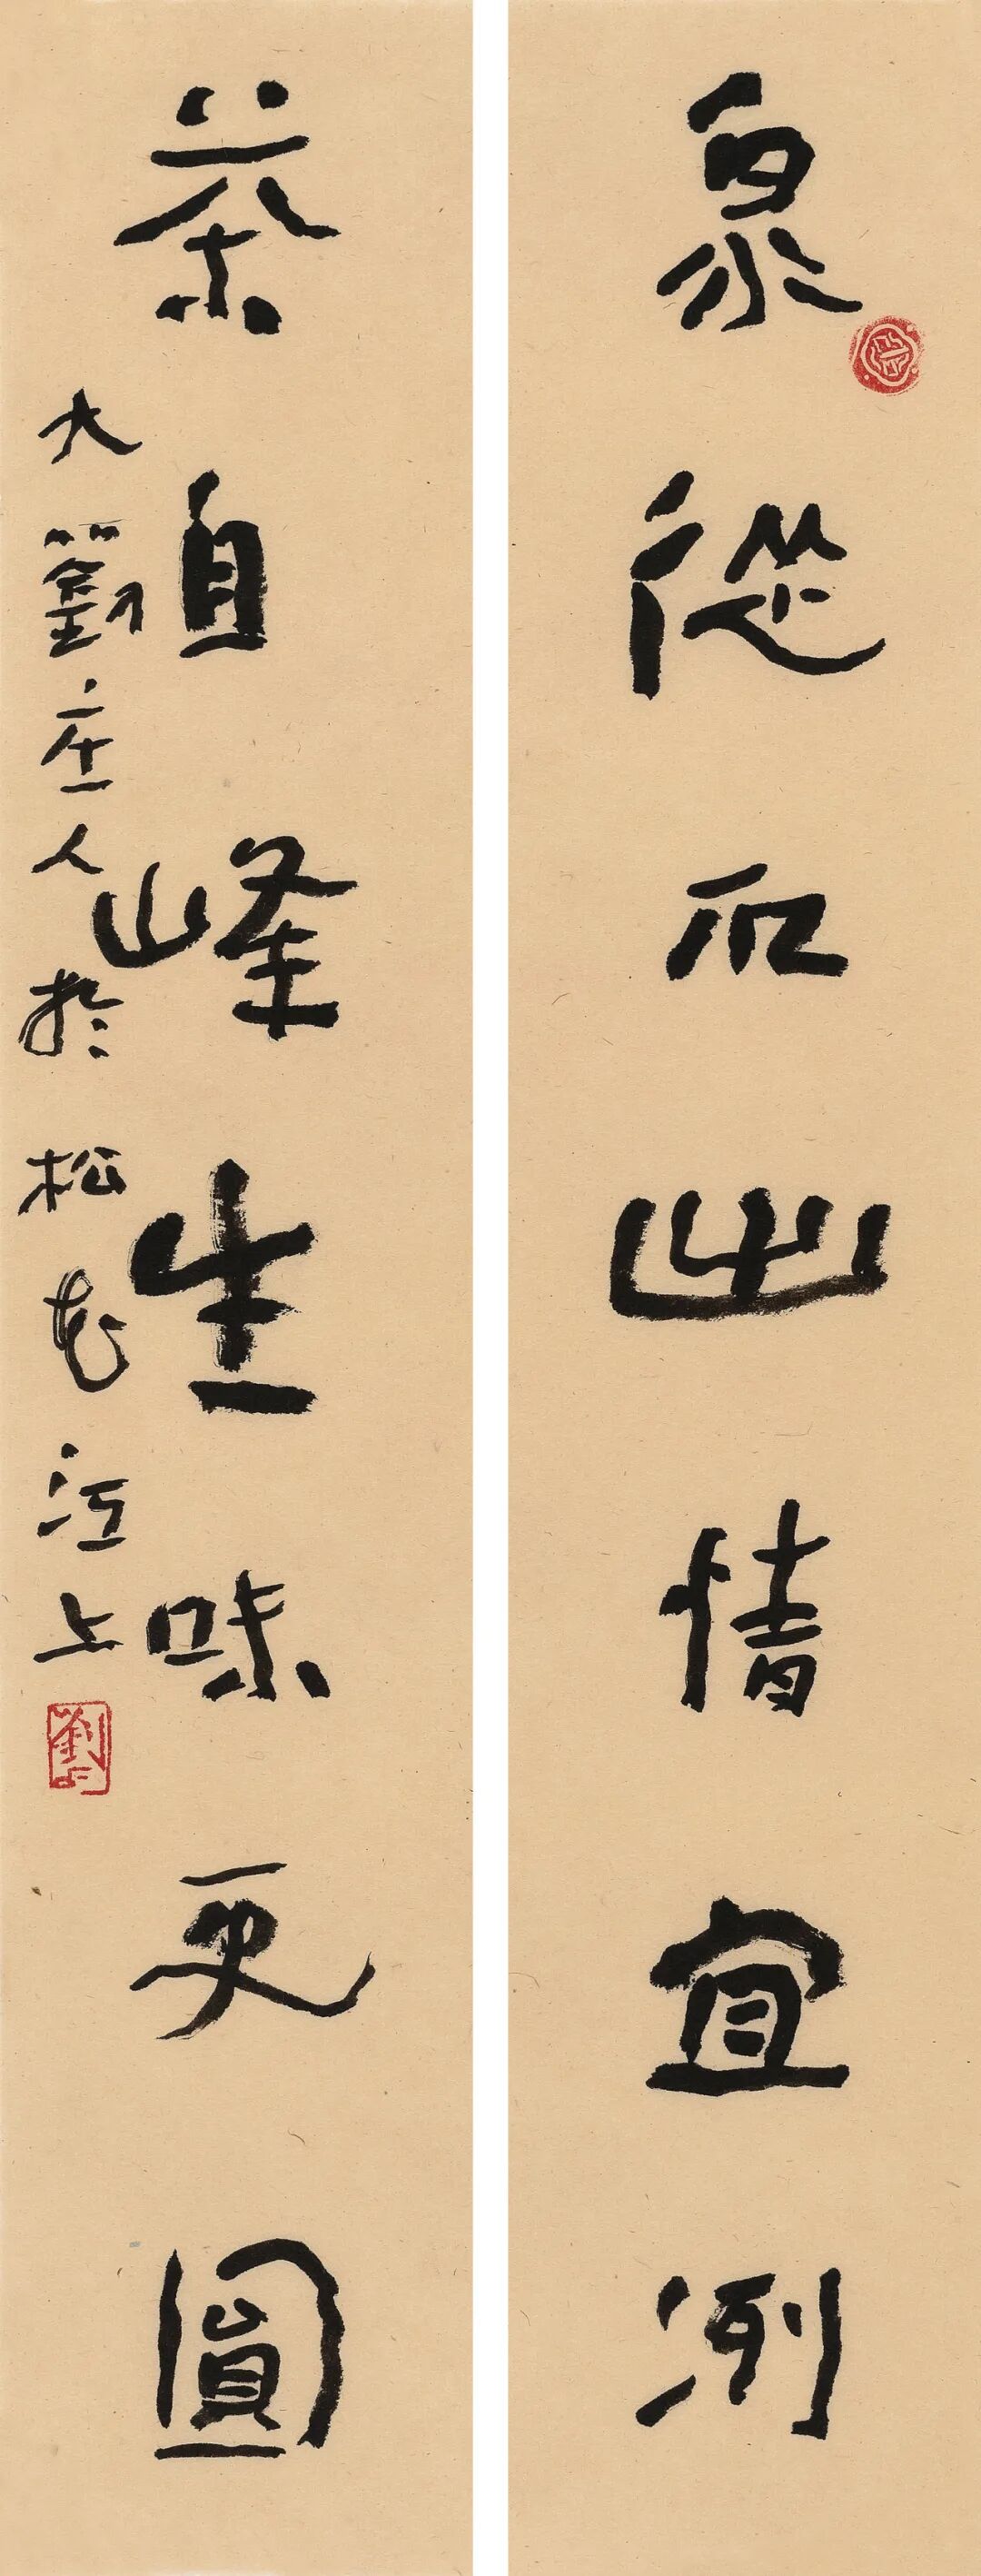 泉從石出情宜冽
茶自峰生味更圓
大劉庄人於松花江上
劉